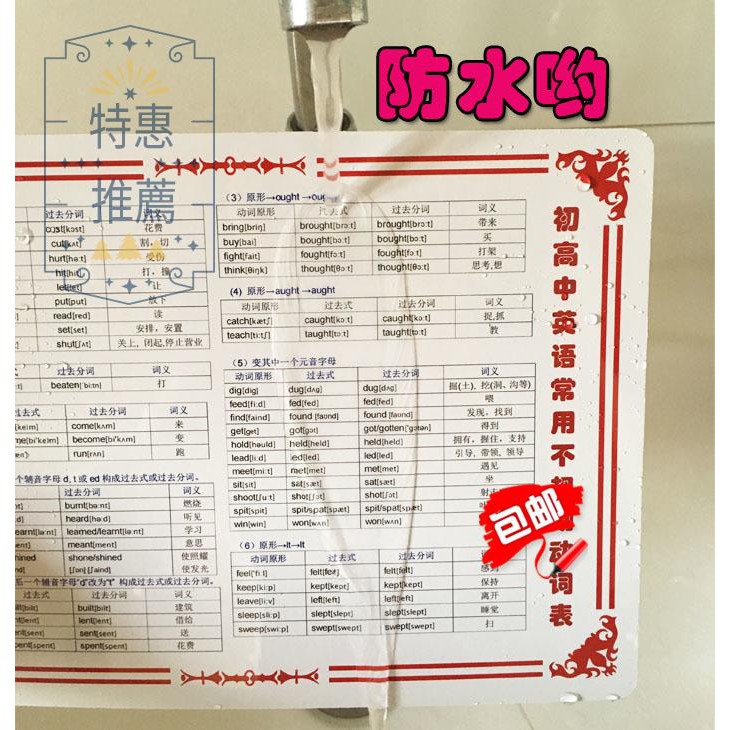 防水哟
特惠
推薦
包邮
初高中英语常用不规则动词表
过去分词 词义
cost[kɔst] 花费
cut[kʌt] 割，切
hurt[hə:t] 受伤
hit[hit] 打，撞
let[let] 让
put[put] 放下
read[red] 读
set[set] 安排，安置
shut[ʃʌt] 关上，闭起,停止营业
beaten['bi:tn] 打
过去分词 词义
come[kʌm] 来
become[bi'kʌm] 变
run[rʌn] 跑
个辅音字母 d, t或 ed 构成过去式或过去分词。
过去分词 词义
burnt[bə:nt] 燃烧
heard[hə:d] 听见
learned/learnt[lə:nt] 学习
meant[ment] 意思
shone/shined 使照耀
[ʃɔn] [ʃaind] 使发光
后一个辅音字母“d”改为“t” 构成过去式或过去分词。
过去式 过去分词 词义
built[bilt] built[bilt] 建筑
lent[lent] lent[lent] 借给
sent[sent] sent[sent] 送
spent[spent] spent[spent] 花费
(3) 原形→ought →ought
动词原形 过去式 过去分词 词义
bring[briŋ] brought[brɔ:t] brought[brɔ:t] 带来
buy[bai] bought[bɔ:t] bought[bɔ:t] 买
fight[fait] fought[fɔ:t] fought[fɔ:t] 打架
think[θiŋk] thought[θɔ:t] thought[θɔ:t] 思考,想
(4) 原形→aught →aught
动词原形 过去式 过去分词 词义
catch[kætʃ] caught[kɔ:t] caught[kɔ:t] 捉,抓
teach[ti:tʃ] taught[tɔ:t] taught[tɔ:t] 教
(5) 变其中一个元音字母
动词原形 过去式 过去分词 词义
dig[dig] dug[dʌg] dug[dʌg] 掘(土), 挖(洞、沟等)
feed[fi:d] fed[fed] fed[fed] 喂
find[faind] found [faʊnd] found [faʊnd] 发现，找到
get[get] got[gɔt] got/gotten['gɔtən] 得到
hold[həuld] held[held] held[held] 拥有，握住，支持
lead[li:d] led[led] led[led] 引导, 带领, 领导
meet[mi:t] met[met] met[met] 遇见
sit[sit] sat[sæt] sat[sæt] 坐
shoot[ʃu:t] shot[ʃɔt] shot[ʃɔt] 射
spit[spit] spit/spat[spæt] spit/spat[spæt]
win[win] won[wʌn] won[wʌn]
(6) 原形→lt→lt
动词原形 过去式 过去分词
feel['fi:l] felt[felt] felt[felt] 感到
keep[ki:p] kept[kept] kept[kept] 保持
leave[li:v] left[left] left[left] 离开
sleep[sli:p] slept[slept] slept[slept] 睡觉
sweep[swi:p] swept[swept] swept[swept] 扫